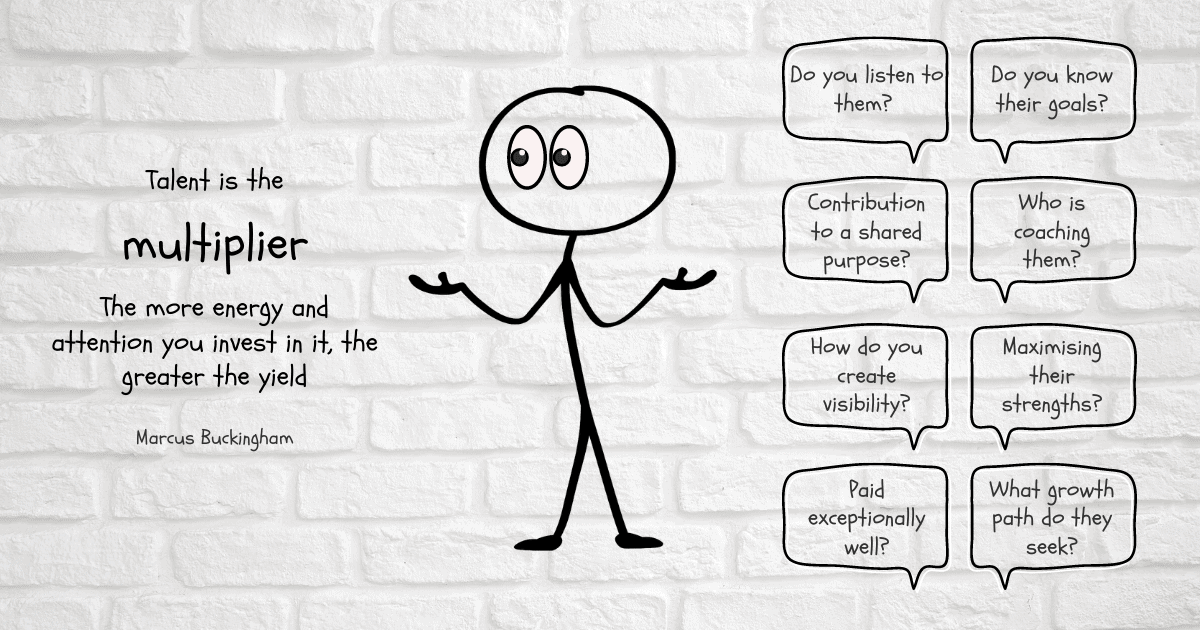 Talent is the
multiplier
The more energy and
attention you invest in it, the
greater the yield
Marcus Buckingham
Do you listen to
them?
Do you know
their goals?
Contribution
to a shared
purpose?
Who is
coaching
them?
How do you
create
visibility?
Maximising
their
strengths?
Paid
exceptionally
well?
What growth
path do they
seek?